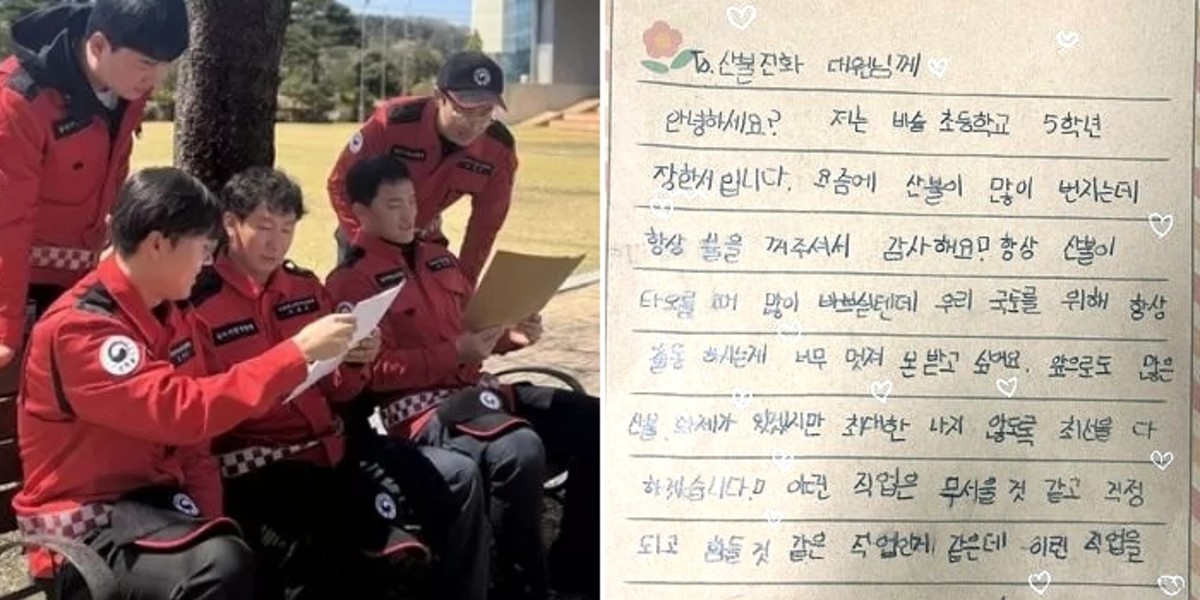 To. 산불진화 대원님께
안녕하세요? 저는 비슬 초등학교 5학년
장한서입니다. 요즘에 산불이 많이 번지는데
항상 불을 꺼주셔서 감사해요! 항상 산불이
타오를 때 많이 바쁘실텐데 우리 국토를 위해 항상
활동 하시는게 너무 멋져 본 받고 싶어요. 앞으로도 많은
산불 화제가 있겠지만 최대한 나지 않도록 최선을 다
하겠습니다.! 이런 직업은 무서울 것 같고 걱정
되고 힘들 것 같은 직업인게 같은데 이런 직업을